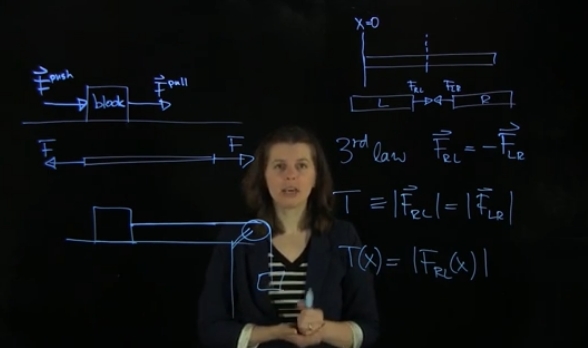 F⃗ push
block
F⃗ pull
F⃗ F⃗
x=0
F⃗RL F⃗LR
L R
3rd law F⃗RL = -F⃗LR
T ≡ |F⃗RL| = |F⃗LR|
T(x) = |F⃗RL(x)|